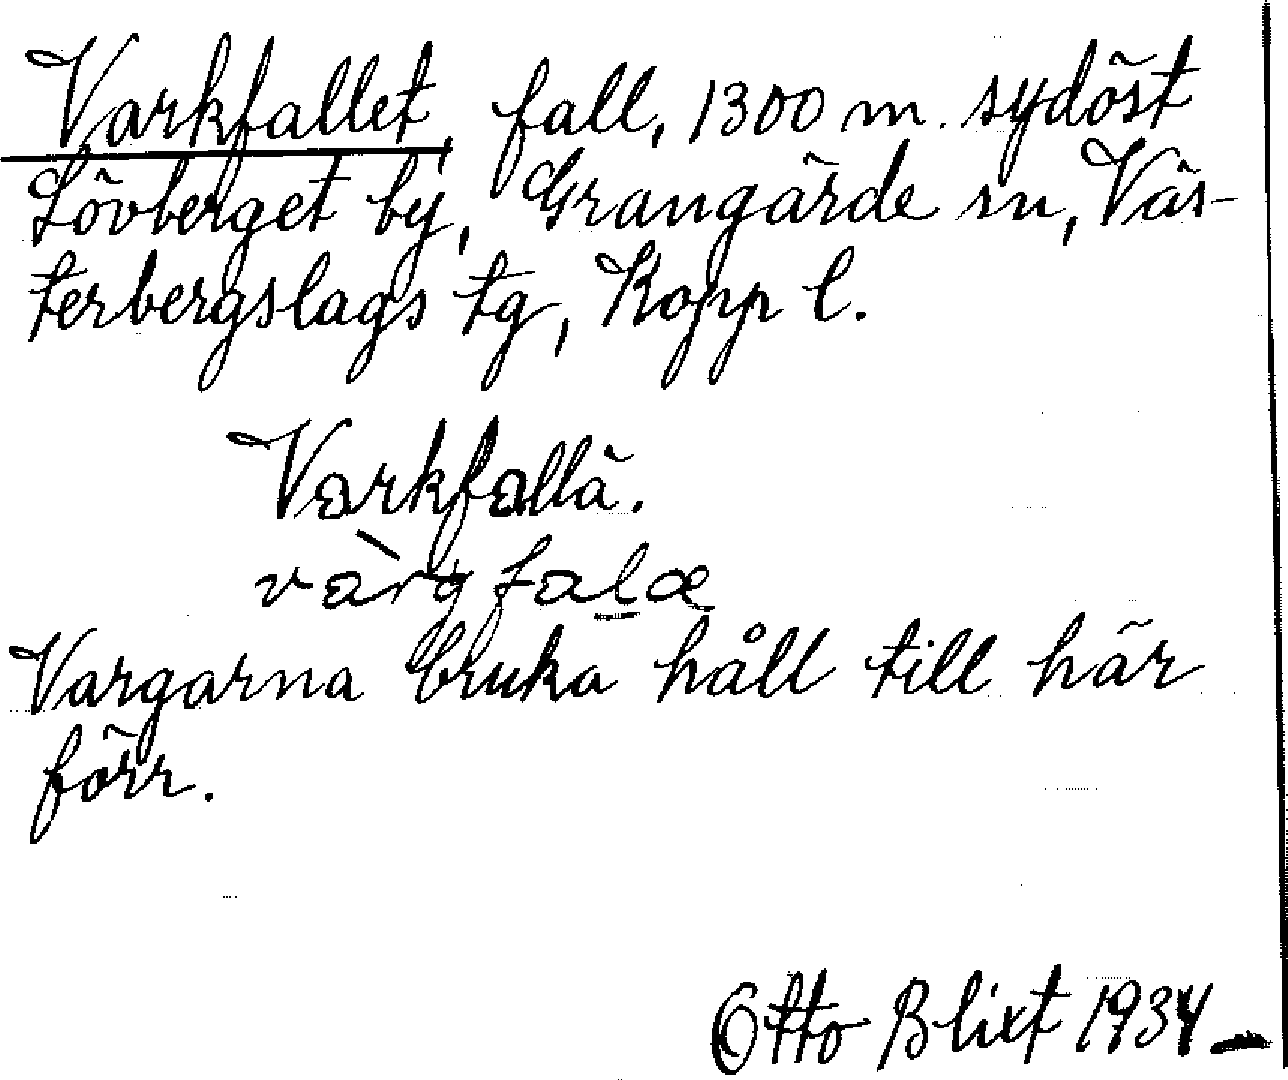 Varkfallet, fall, 1300 m. sydöst
Lövberget by, Grangärde sn, Väs-
terbergslags tg, Kopp l.
Varkfallä.
vàrg falæ
Vargarna bruka håll till här
förr.
Otto Blixt 1934